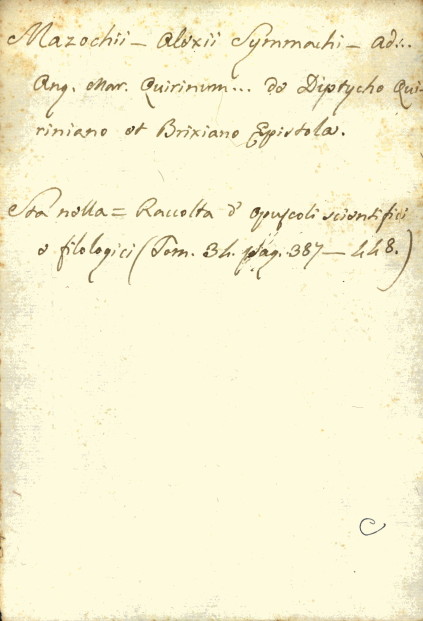 Mazochii - Alexii Symmachi - ad..
Ang. Mar. Quirinum... de Diptycho Qui-
riniano et Brixiano Epistola.
Sta nella = Raccolta d' opuscoli scientifici
e filologici (Tom. 34. pag. 387 - 448.)
C